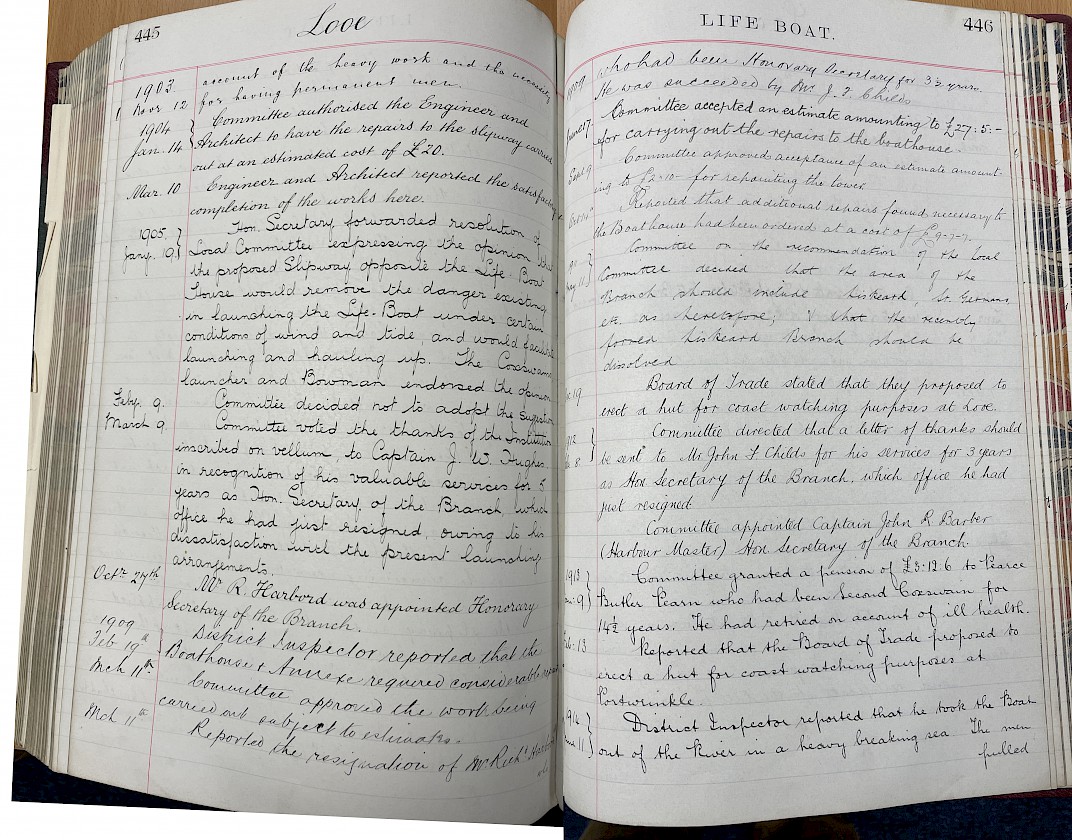 445
Looe
account of the heavy work and the necessity
1903
Nov. 12
for having permanent men.
1904
Committee authorised the Engineer and
Jan. 14
Architect to have the repairs to the slipway carried
out at an estimated cost of £20.
Mar. 10
Engineer and Architect reported the satisfactory
completion of the works here.
1905
Hon. Secretary forwarded resolution of
Jany. 19
Local Committee expressing the opinion that
the proposed Slipway opposite the Life-Boat
House would remove the danger existing
in launching the Life-Boat under certain
conditions of wind and tide, and would facilitate
launching and hauling up. The Coxswain
launcher and Bowman endorsed the opinion
Feby. 9.
Committee decided not to adopt the suggestion
March 9.
Committee voted the thanks of the Institution
inscribed on vellum to Captain J. W. Hughes
in recognition of his valuable services for 5
years as Hon. Secretary of the Branch, which
office he had just resigned, owing to his
dissatisfaction with the present launching
arrangements.
Octr 27th
Mr R. Harbord was appointed Honorary
Secretary of the Branch.
1909
Feb 19th
District Inspector reported that the
Boathouse & Annexe required considerable
Mch 11th
Committee approved the work being
carried out subject to estimates.
Mch 11th
Reported the resignation of Mr Richd
LIFE BOAT.
446
1909
who had been Honorary Secretary for 3½ years.
He was succeeded by Mr J. F. Childs
June 17
Committee accepted an estimate amounting to £27:5:-
for carrying out the repairs to the boathouse.
Sept 9
Committee approved acceptance of an estimate amount-
ing to £2-10- for repainting the tower
Reported that additional repairs found necessary to
the Boathouse had been ordered at a cost of £9-7-7.
Committee on the recommendation of the Local
Committee decided that the area of the
Branch should include Liskeard, St. Germans
etc. as heretofore; & that the recently
formed Liskeard Branch should be
dissolved
19
Board of Trade stated that they proposed to
erect a hut for coast watching purposes at Looe.
912
Committee directed that a letter of thanks should
8
be sent to Mr John F Childs for his services for 3 years
as Hon Secretary of the Branch, which office he had
just resigned
Committee appointed Captain John R Barber
(Harbour Master) Hon Secretary of the Branch.
1913
Committee granted a pension of £3.12.6 to Pearce
9
Butler Pearn who had been Second Coxswain for
14½ years. He had retired on account of ill health.
13
Reported that the Board of Trade proposed to
erect a hut for coast watching purposes at
Portwrinkle.
1914
District Inspector reported that he took the Boat
11
out of the River in a heavy breaking sea. The men
pulled